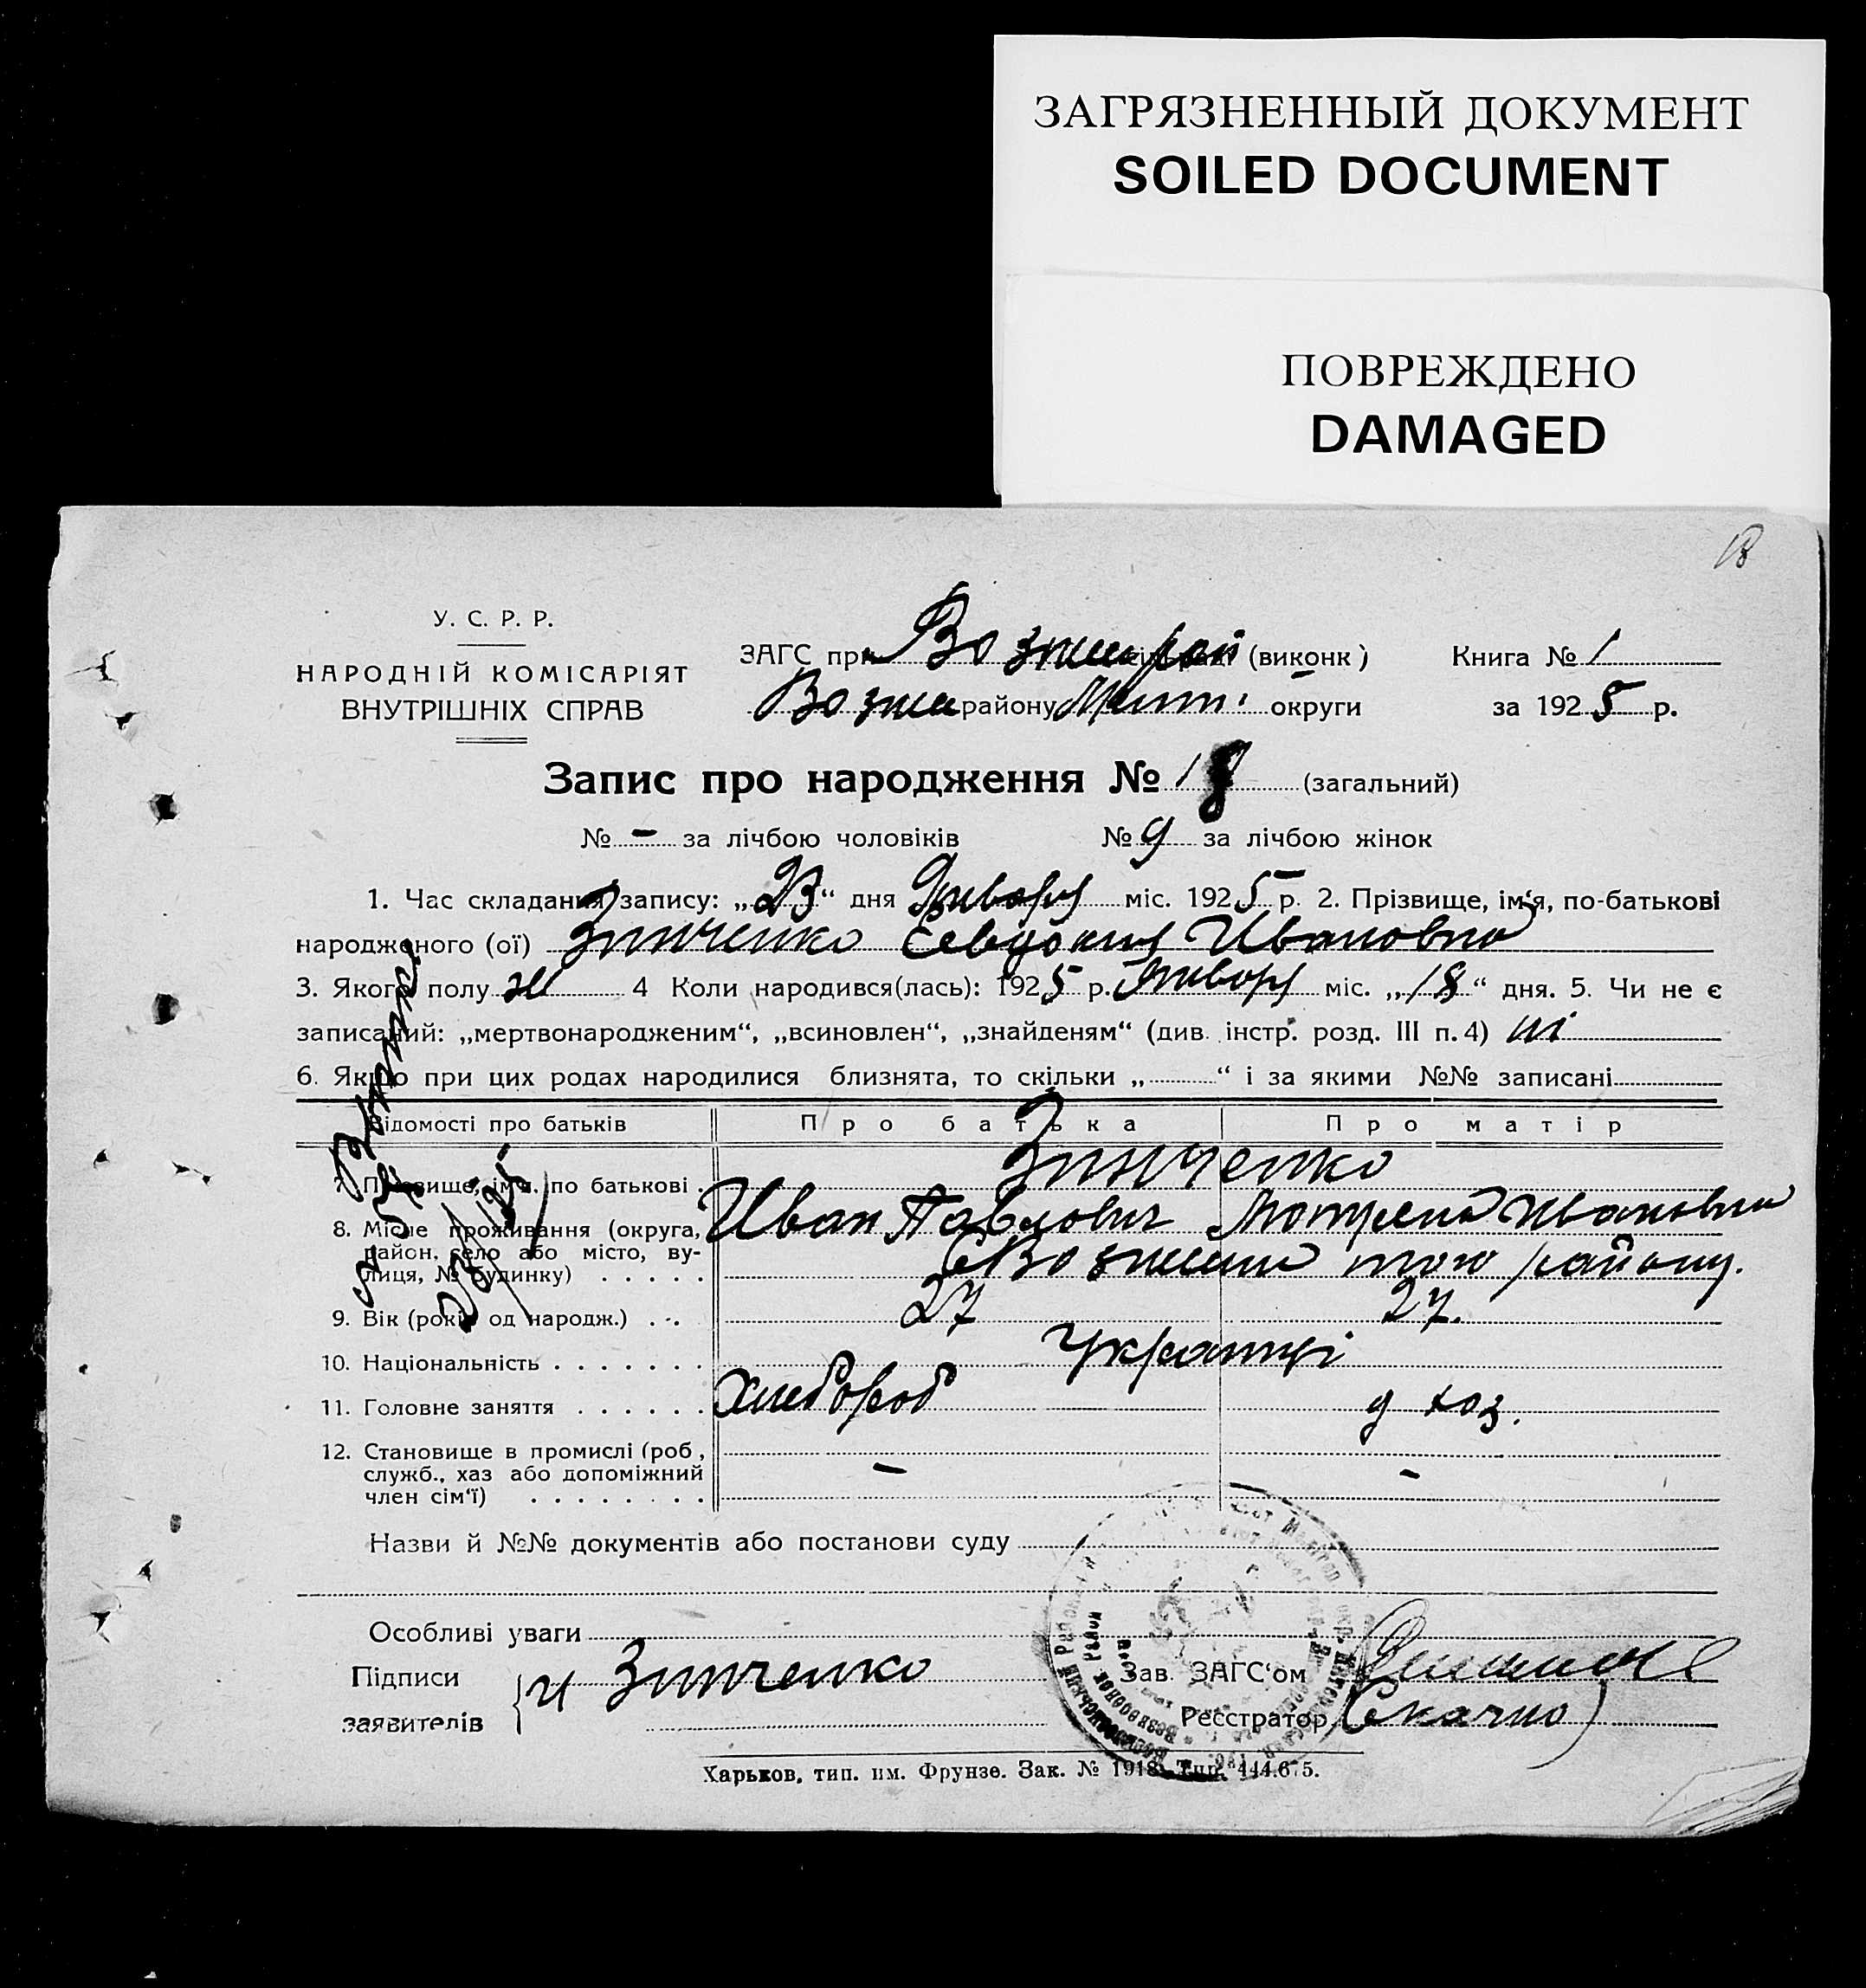 ЗАГРЯЗНЕННЫЙ ДОКУМЕНТ
SOILED DOCUMENT
ПОВРЕЖДЕНО
DAMAGED
18
У. С. Р. Р.
НАРОДНІЙ КОМІСАРІЯТ
ВНУТРІШНІХ СПРАВ
ЗАГС при (виконк)
району округи
Книга № 1
за 1925 р.
Запис про народження № 18 (загальний)
№ - за лічбою чоловіків № 9 за лічбою жінок
1. Час складання запису: „23“ дня Января міс. 1925 р. 2. Прізвище, ім‘я, по-батькові
народженого (ої) Зинченко Евдокия Ивановна
3. Якого полу ж 4 Коли народився(лась): 1925 р. Января міс. „18“ дня. 5. Чи не є
записаний: „мертвонародженим“, „всиновлен“, „знайденям“ (див. інстр. розд. III п. 4) ні
6. Якщо при цих родах народилися близнята, то скільки „ “ і за якими №№ записані
Відомості про батьків Про батька Про матір
7. Прізвище, ім‘я, по батькові . Зинченко
Иван Павлович Мотрена Ивановна
8. Місце проживання (округа, район, село або місто, вулиця, № будинку) . . . . . того району.
9. Вік (років од народж.) . . . 27 27.
10. Національність . . . . . . . Українці
11. Головне заняття . . . . . . Хлебороб д хоз.
12. Становище в промислі (роб., служб., хаз або допоміжний член сім‘ї) . . . . . . . . - -
23/I 25
Назви й №№ документів або постанови суду
Особливі уваги
Підписи
заявителів
И Зинченко
Зав. ЗАГС‘ом
Реєстратор
Харьков, тип. им. Фрунзе. Зак. № 1918